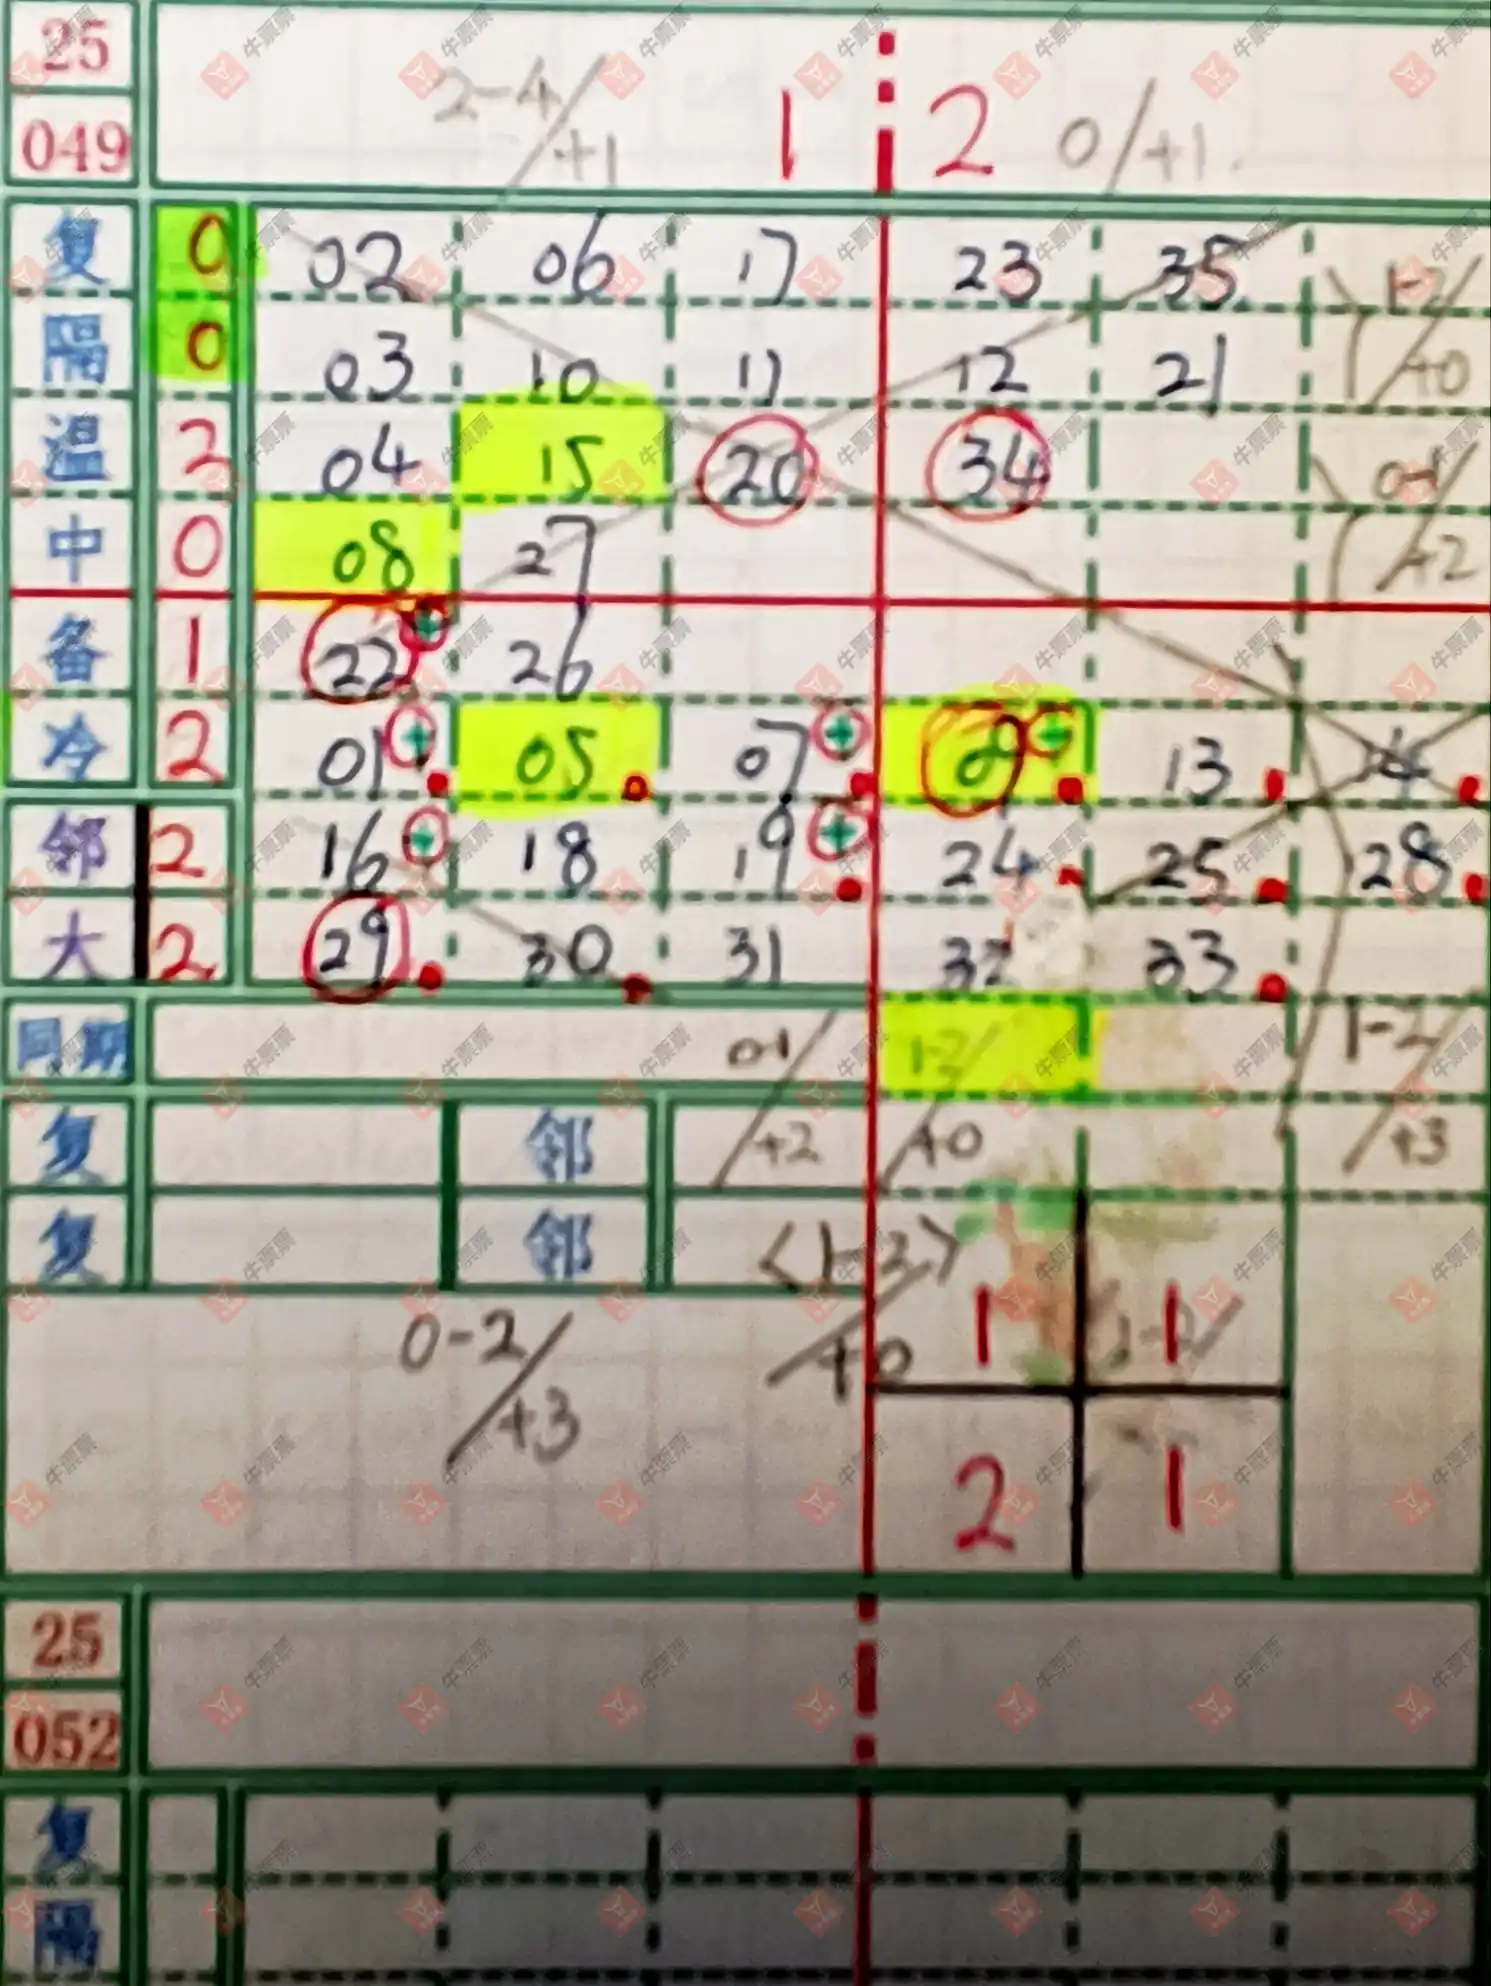 25
2-4/+1 1 2 0/+1
049
复 0 02 06 17 23 35 1-2/+0
隔 0 03 10 11 12 21
温 2 04 15 20 34 0-1/+2
中 0 08 27
备 1 22 26
冷 2 01 05 07 09 13 14
邻 2 16 18 19 24 25 28
大 2 29 30 31 32 33
同期 0-1/+2 1-2/+0 1-2/+3
复 邻
复 邻 <1-2>/+0
0-2/+3 1 1 1-2/
2 1
25
052
复
隔
牛票票